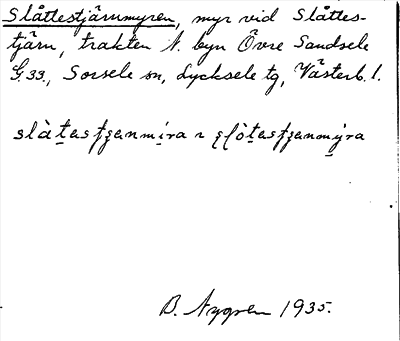 Slåttestjärnmyren, myr vid Slåttes-
tjärn, trakten N. byn Övre Sandsele
G.33., Sorsele sn, Lycksele tg, Västerb. l.
B. Nygren 1935.